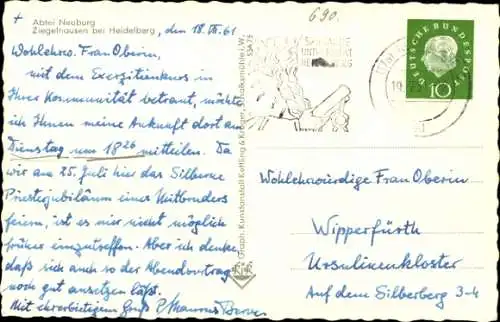 +
Abtei Neuburg
Ziegelhausen bei Heidelberg, den 18. VII. 61
690.
Wohlehrw. Frau Oberin,
mit dem Exerzitienkurs in
Ihrer Kommunität betraut, möchte
ich Ihnen meine Ankunft dort am
Dienstag um 18 26 mitteilen. Da
wir am 25. Juli hier das Silberne
Priesterjubiläum eines Mitbruders
feiern, ist es mir nicht möglich
früher einzutreffen. Aber ich denke,
daß sich auch so der Abendvortrag
noch gut ansetzen läßt.
Mit ehrerbietigem Gruß P. Maurus
Graph. Kunstanstalt Kettling & Krüger, Schalksmühle i. W.
DEUTSCHE BUNDESPOST
10
Wohlehrwürdige Frau Oberin
Wipperfürth
Ursulinenkloster
Auf dem Silberberg 3-4